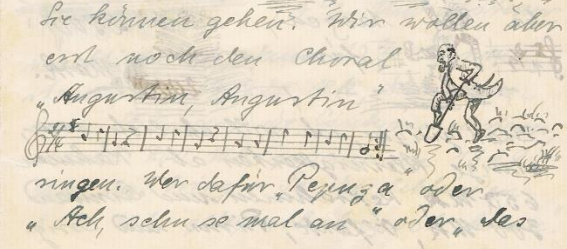 Sie können gehen. Wir wollen aber
erst noch den Choral
„Augustin, Augustin"
singen. Wer dafür „Pepuga" oder
„Ach, sehn se mal an" oder „das